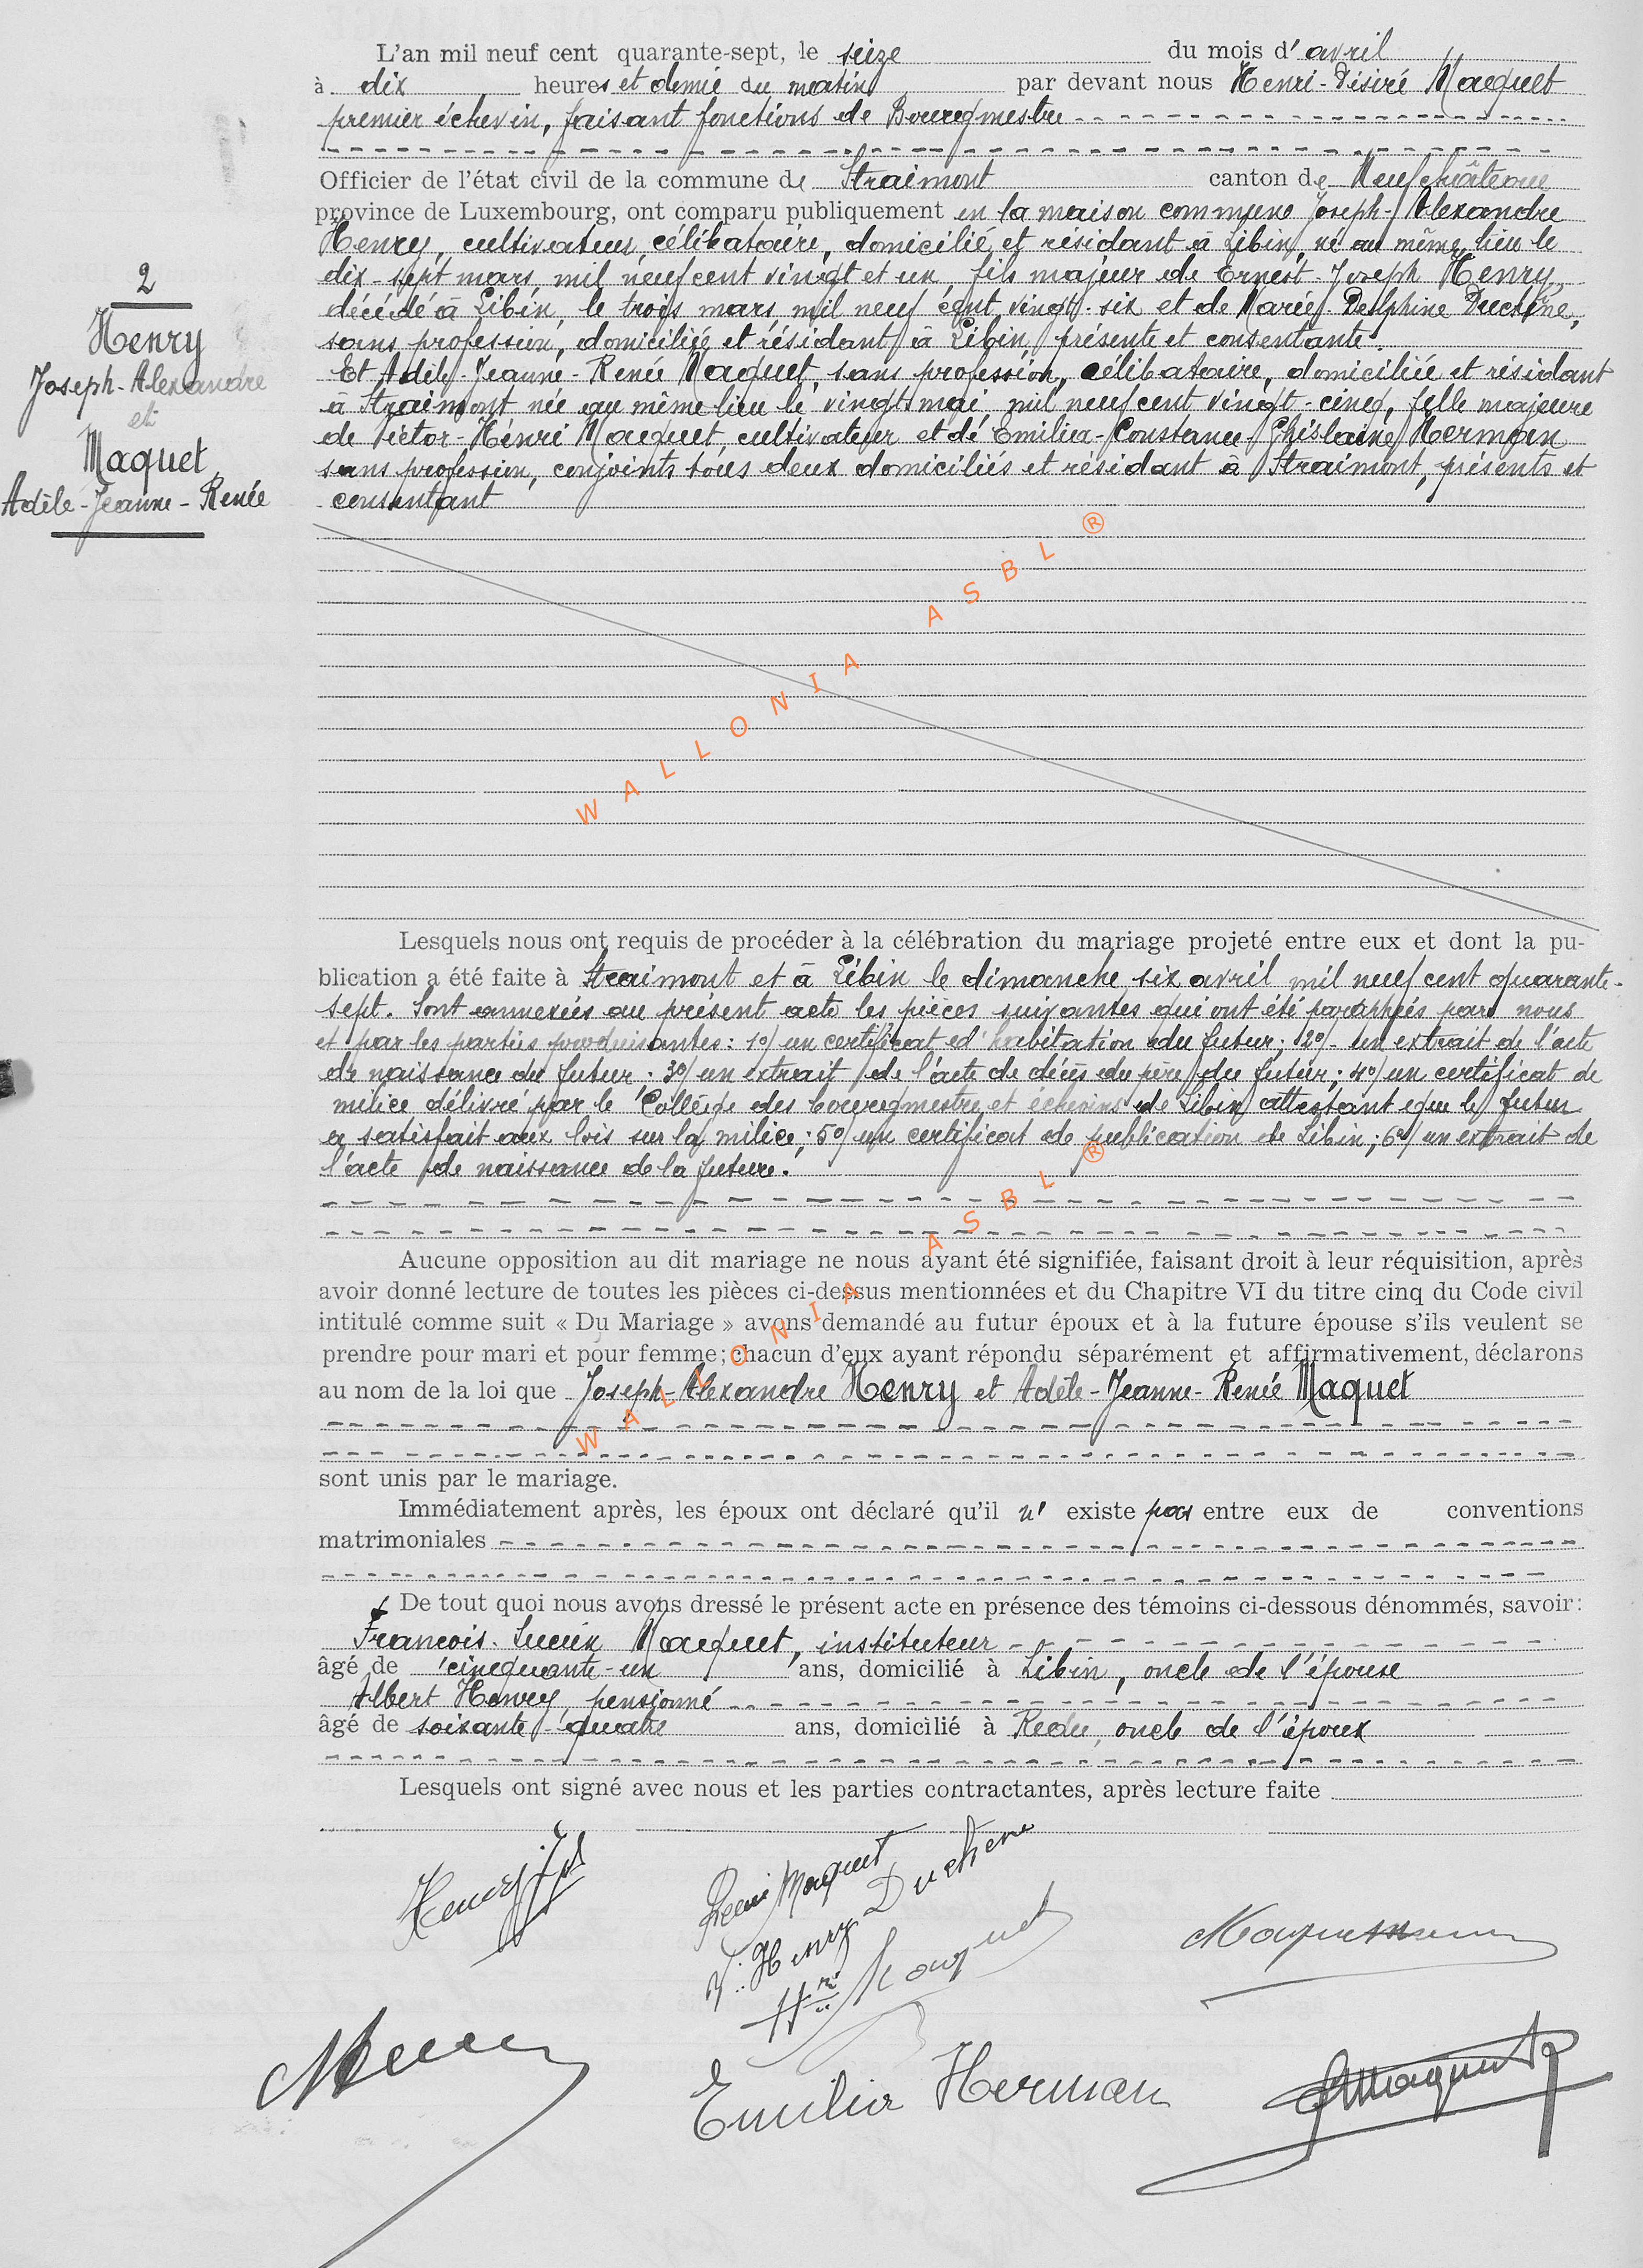 2
Henry
Joseph-Alexandre
et
Maquet
Adèle-Jeanne-Renée
L'an mil neuf cent quarante-sept, le seize du mois d'avril
à dix heures et demie du matin par devant nous Henri-Désiré Maquet
premier échevin, faisant fonctions de Bourgmestre
Officier de l'état civil de la commune de Straimont canton de Neufchâteau
province de Luxembourg, ont comparu publiquement en la maison commune Joseph-Alexandre
Henry, cultivateur, célibataire, domicilié et résidant à Libin, né au même lieu le
dix-sept mars mil neuf cent vingt et un, fils majeur de Ernest-Joseph Henry,
décédé à Libin, le trois mars mil neuf cent vingt-six et de Marie-Delphine Duchêne,
sans profession, domiciliée et résidant à Libin, présente et consentante.
Et Adèle-Jeanne-Renée Maquet, sans profession, célibataire, domiciliée et résidant
à Straimont née au même lieu le vingt mai mil neuf cent vingt-cinq, fille majeure
de Victor-Henri Maquet, cultivateur et de Emilia-Constance-Ghislaine Herman
sans profession, conjoints tous deux domiciliés et résidant à Straimont, présents et
consentant
WALLONIA ASBL ®
Lesquels nous ont requis de procéder à la célébration du mariage projeté entre eux et dont la pu-
blication a été faite à Straimont et à Libin le dimanche six avril mil neuf cent quarante-
sept. Sont annexées au présent acte les pièces suivantes qui ont été paraphées par nous
et par les parties produisantes: 1º/ un certificat d'habitation du futur; 2º/- un extrait de l'acte
de naissance du futur. 3º/ un extrait de l'acte de décès du père du futur; 4º/ un certificat de
milice délivré par le Collège des bourgmestre et échevins de Libin attestant que le futur
a satisfait aux lois sur la milice; 5º/ un certificat de publication de Libin; 6º/ un extrait de
l'acte de naissance de la future.
WALLONIA ASBL ®
Aucune opposition au dit mariage ne nous ayant été signifiée, faisant droit à leur réquisition, après
avoir donné lecture de toutes les pièces ci-dessus mentionnées et du Chapitre VI du titre cinq du Code civil
intitulé comme suit « Du Mariage » avons demandé au futur époux et à la future épouse s'ils veulent se
prendre pour mari et pour femme; chacun d'eux ayant répondu séparément et affirmativement, déclarons
au nom de la loi que Joseph-Alexandre Henry et Adèle-Jeanne-Renée Maquet
sont unis par le mariage.
Immédiatement après, les époux ont déclaré qu'il n'existe pas entre eux de conventions
matrimoniales
De tout quoi nous avons dressé le présent acte en présence des témoins ci-dessous dénommés, savoir:
François-Lucien Maquet, instituteur
âgé de cinquante-un ans, domicilié à Libin, oncle de l'épouse
Albert Henry, pensionné
âgé de soixante-quatre ans, domicilié à Redu, oncle de l'époux
Lesquels ont signé avec nous et les parties contractantes, après lecture faite
Henry Jos
Renée Maquet
Henry Duchêne
Maquet
Emilia Herman
Maquet